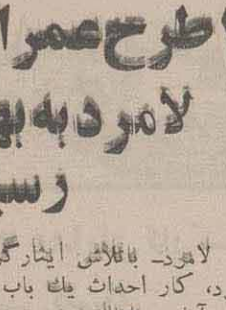 طرح عمرا
لامرد به به
رسی
لامرد ـ باتلاش ایثارگر
رد، کار احداث یك باب